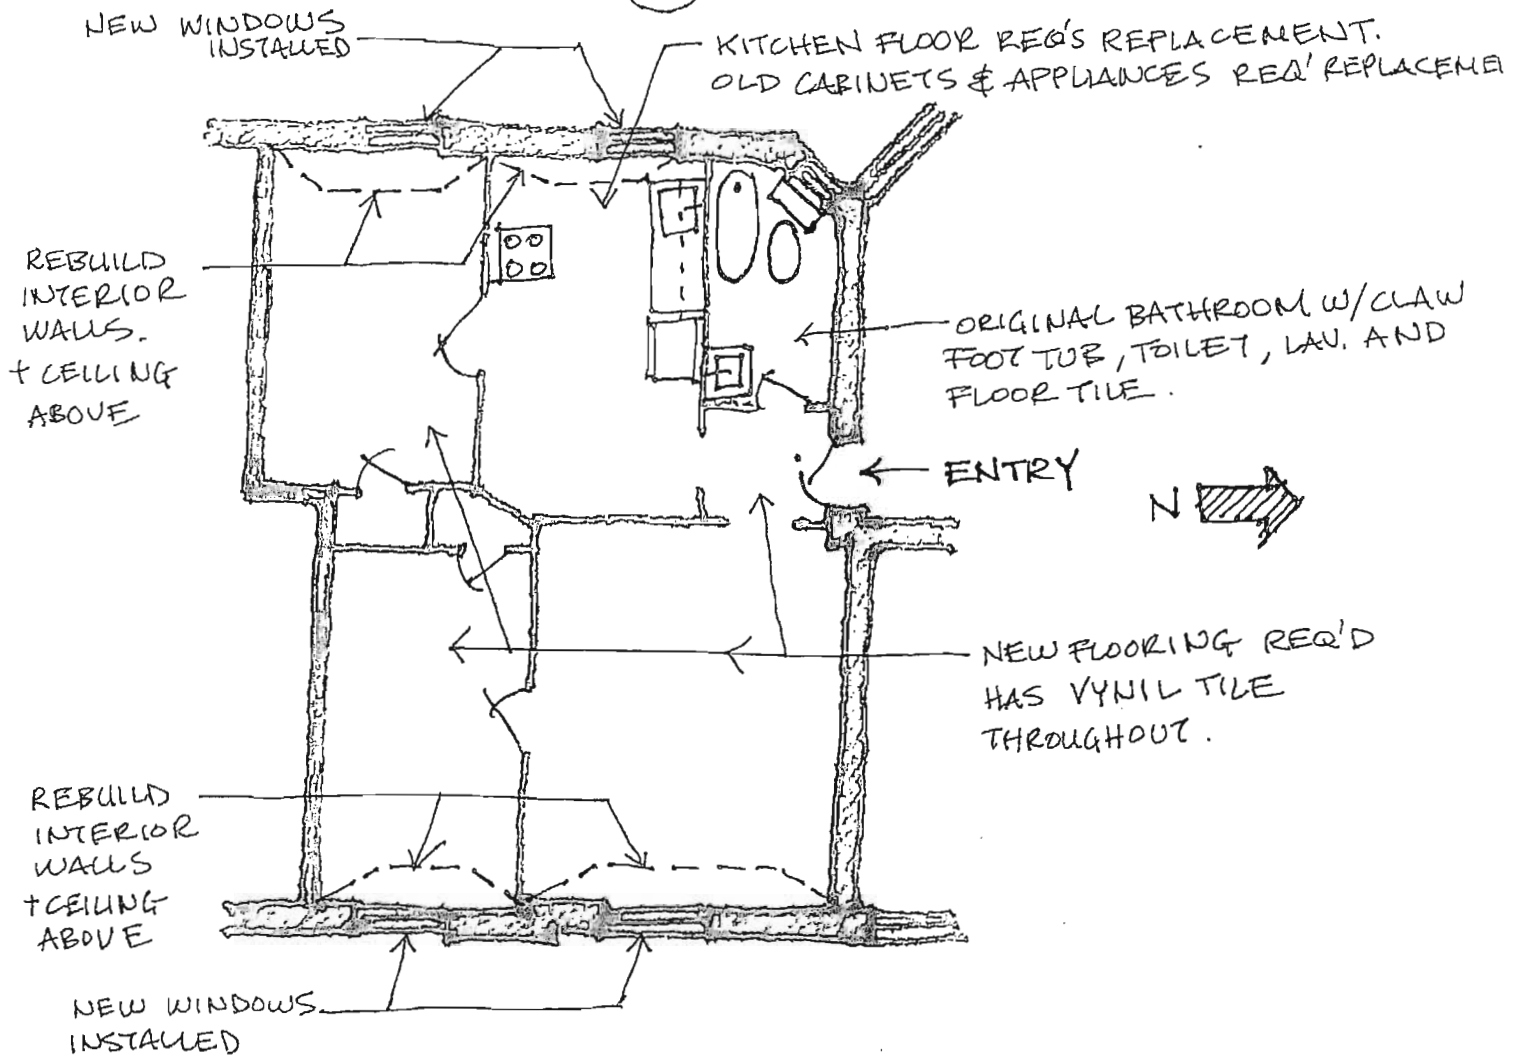 NEW WINDOWS
INSTALLED
KITCHEN FLOOR REQ'S REPLACEMENT.
OLD CABINETS & APPLIANCES REQ' REPLACEME
REBUILD
INTERIOR
WALLS.
+ CEILING
ABOVE
ORIGINAL BATHROOM W/CLAW
FOOT TUB, TOILET, LAV. AND
FLOOR TILE.
ENTRY
N
NEW FLOORING REQ'D
HAS VYNIL TILE
THROUGHOUT.
REBUILD
INTERIOR
WALLS
+ CEILING
ABOVE
NEW WINDOWS
INSTALLED